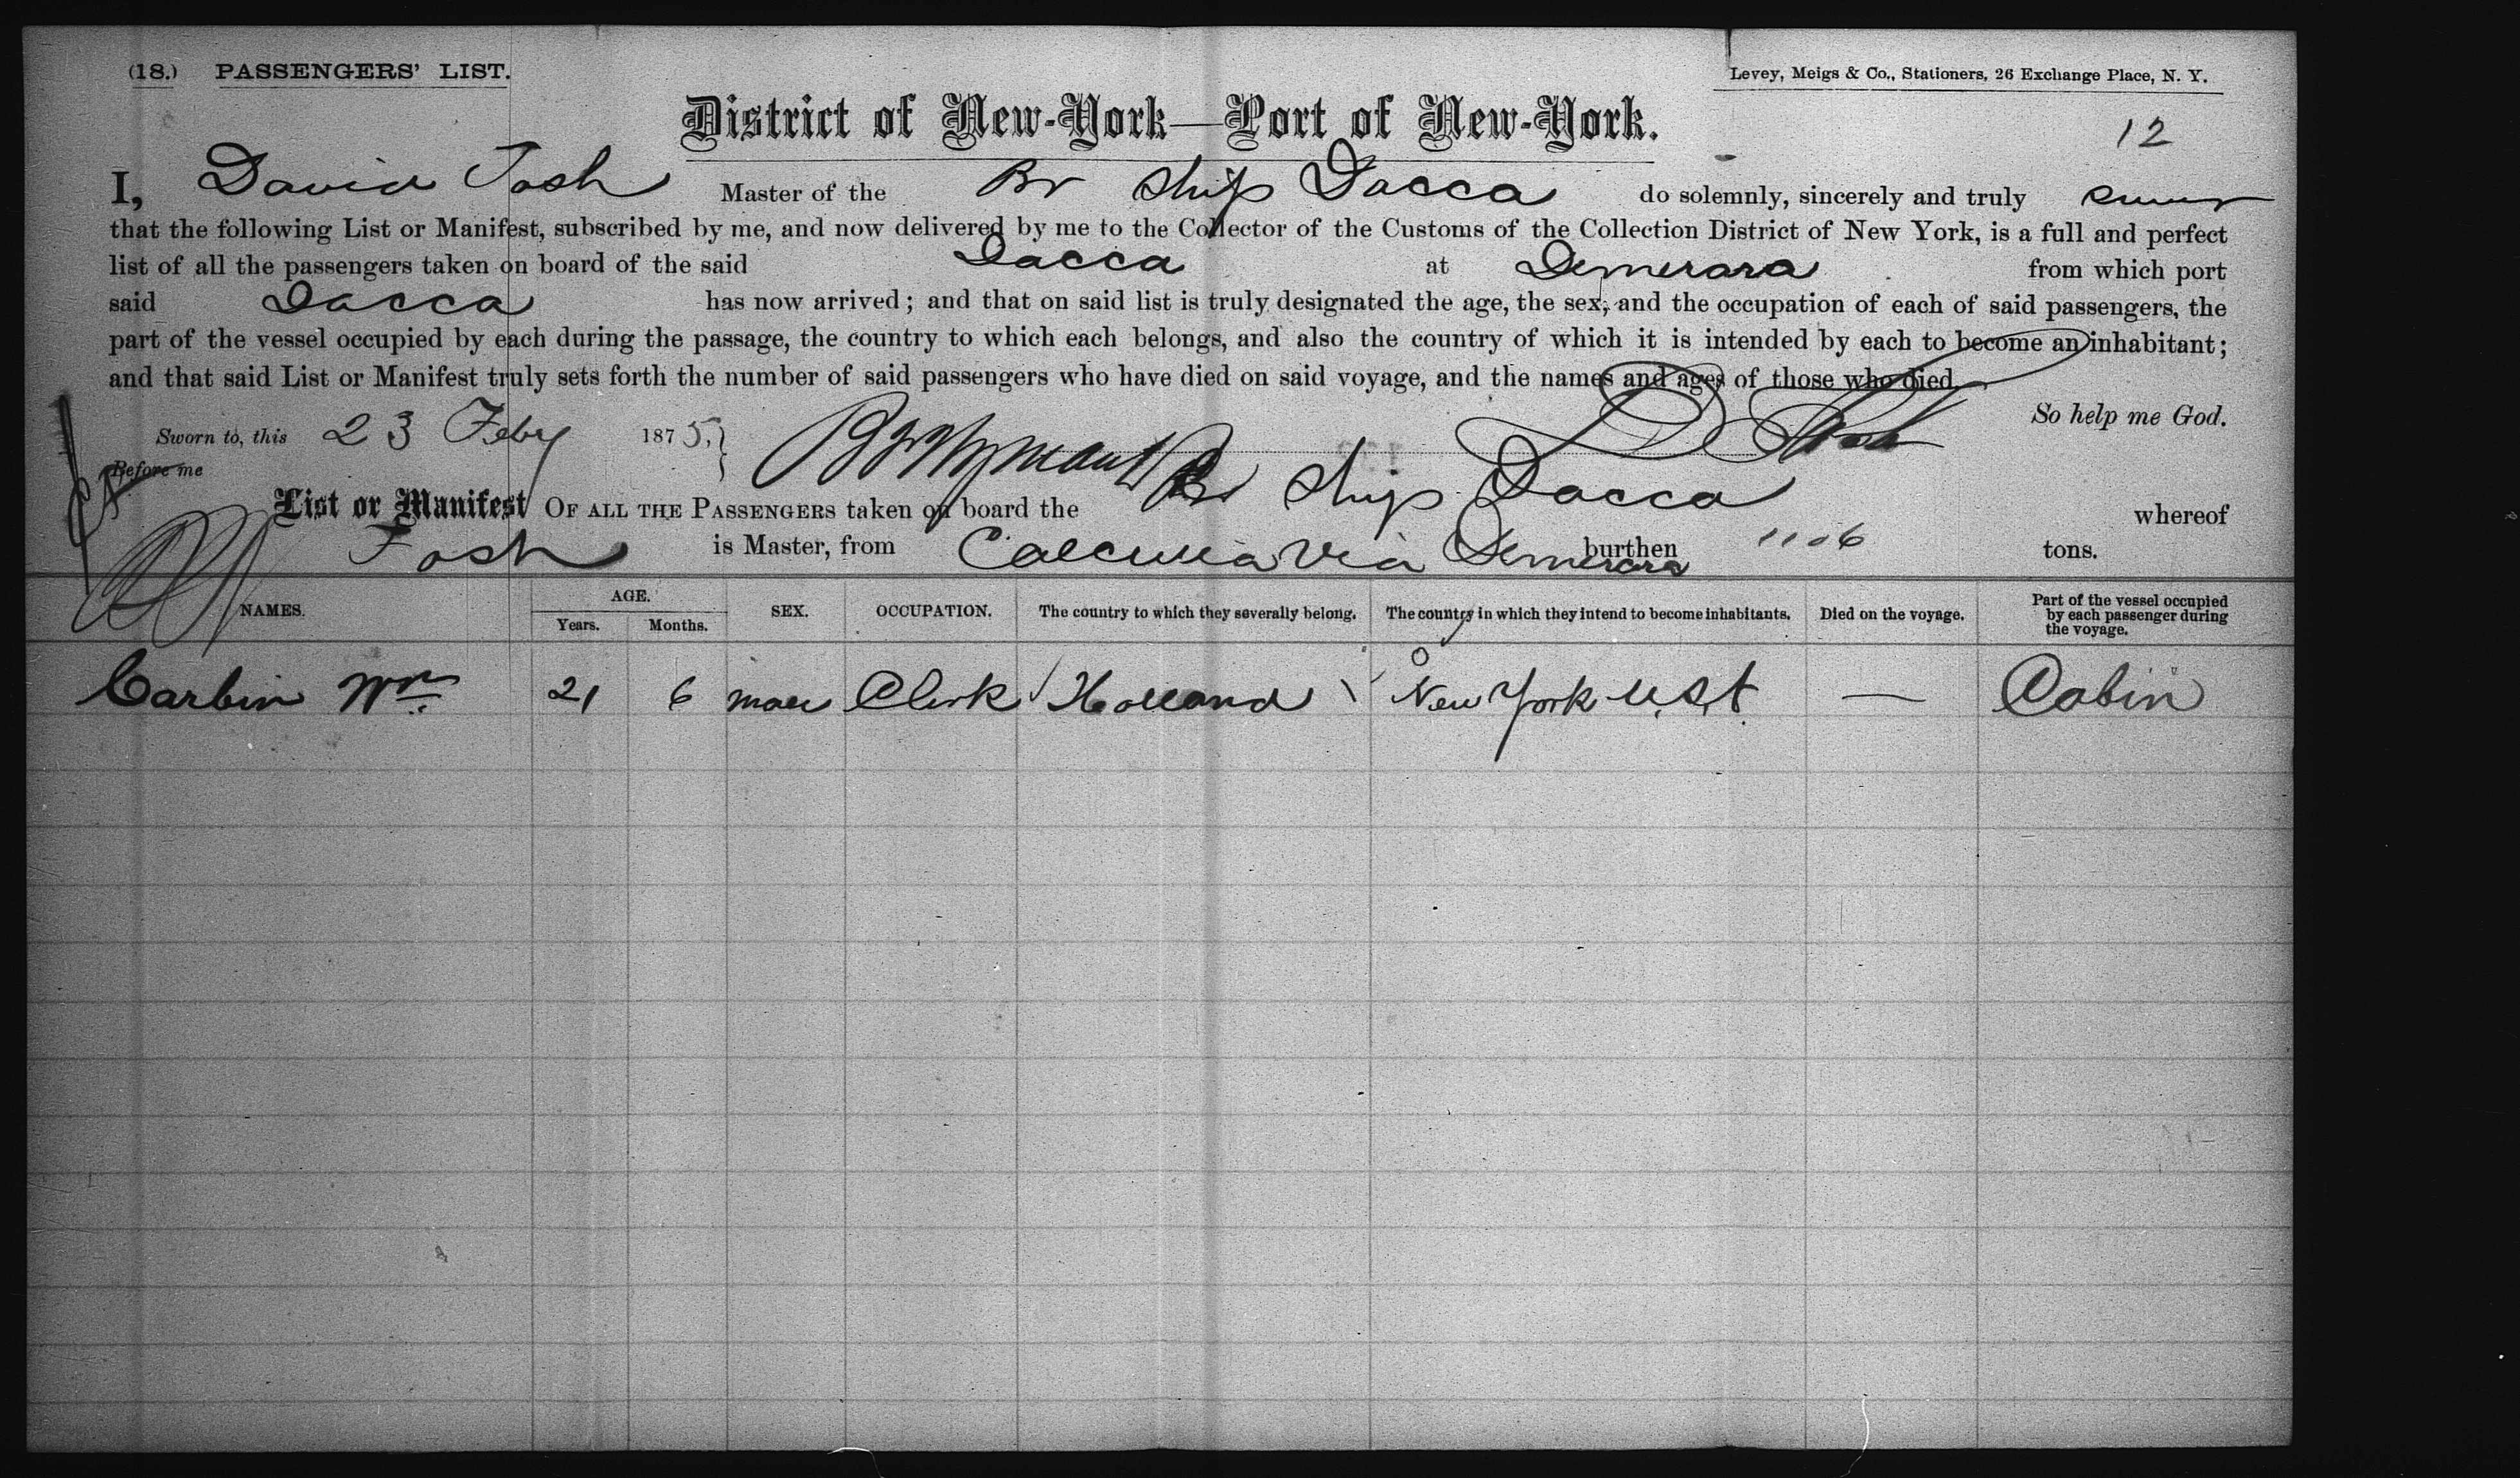 (18.) PASSENGERS' LIST.
Levey, Meigs & Co., Stationers, 26 Exchange Place, N. Y.
District of New-York—Port of New-York.
12
I, David Tosh Master of the Br Ship Dacca do solemnly, sincerely and truly swear
that the following List or Manifest, subscribed by me, and now delivered by me to the Collector of the Customs of the Collection District of New York, is a full and perfect
list of all the passengers taken on board of the said Dacca at Demerara from which port
said Dacca has now arrived; and that on said list is truly designated the age, the sex, and the occupation of each of said passengers, the
part of the vessel occupied by each during the passage, the country to which each belongs, and also the country of which it is intended by each to become an inhabitant;
and that said List or Manifest truly sets forth the number of said passengers who have died on said voyage, and the names and ages of those who died.
So help me God.
Sworn to, this 23 Feby 1875. D Tosh
Before me
List or Manifest OF ALL THE PASSENGERS taken on board the Br Ship Dacca whereof
Tosh is Master, from Calcutta Via Demerara burthen 1106 tons.
NAMES. AGE. Years. Months. SEX. OCCUPATION. The country to which they severally belong. The country in which they intend to become inhabitants. Died on the voyage. Part of the vessel occupied by each passenger during the voyage.
Carbin Wm 21 6 male Clerk Holland New York U.S.A. — Cabin